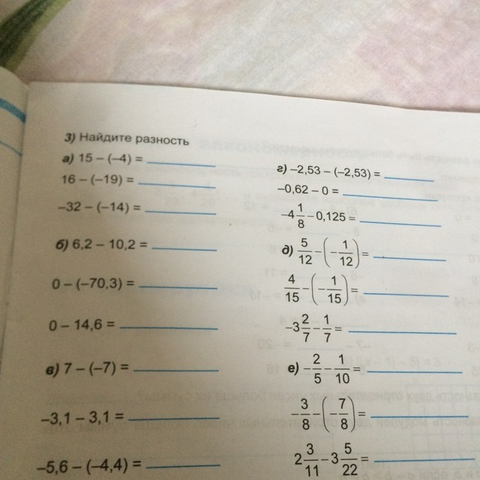 3) Найдите разность
а) 15 – (–4) =
16 – (–19) =
–32 – (–14) =
б) 6,2 – 10,2 =
0 – (–70,3) =
0 – 14,6 =
в) 7 – (–7) =
–3,1 – 3,1 =
–5,6 – (–4,4) =
г) –2,53 – (–2,53) =
–0,62 – 0 =
–4 1/8 – 0,125 =
д) 5/12 – (– 1/12) =
4/15 – (– 1/15) =
–3 2/7 – 1/7 =
е) – 2/5 – 1/10 =
– 3/8 – (– 7/8) =
2 3/11 – 3 5/22 =